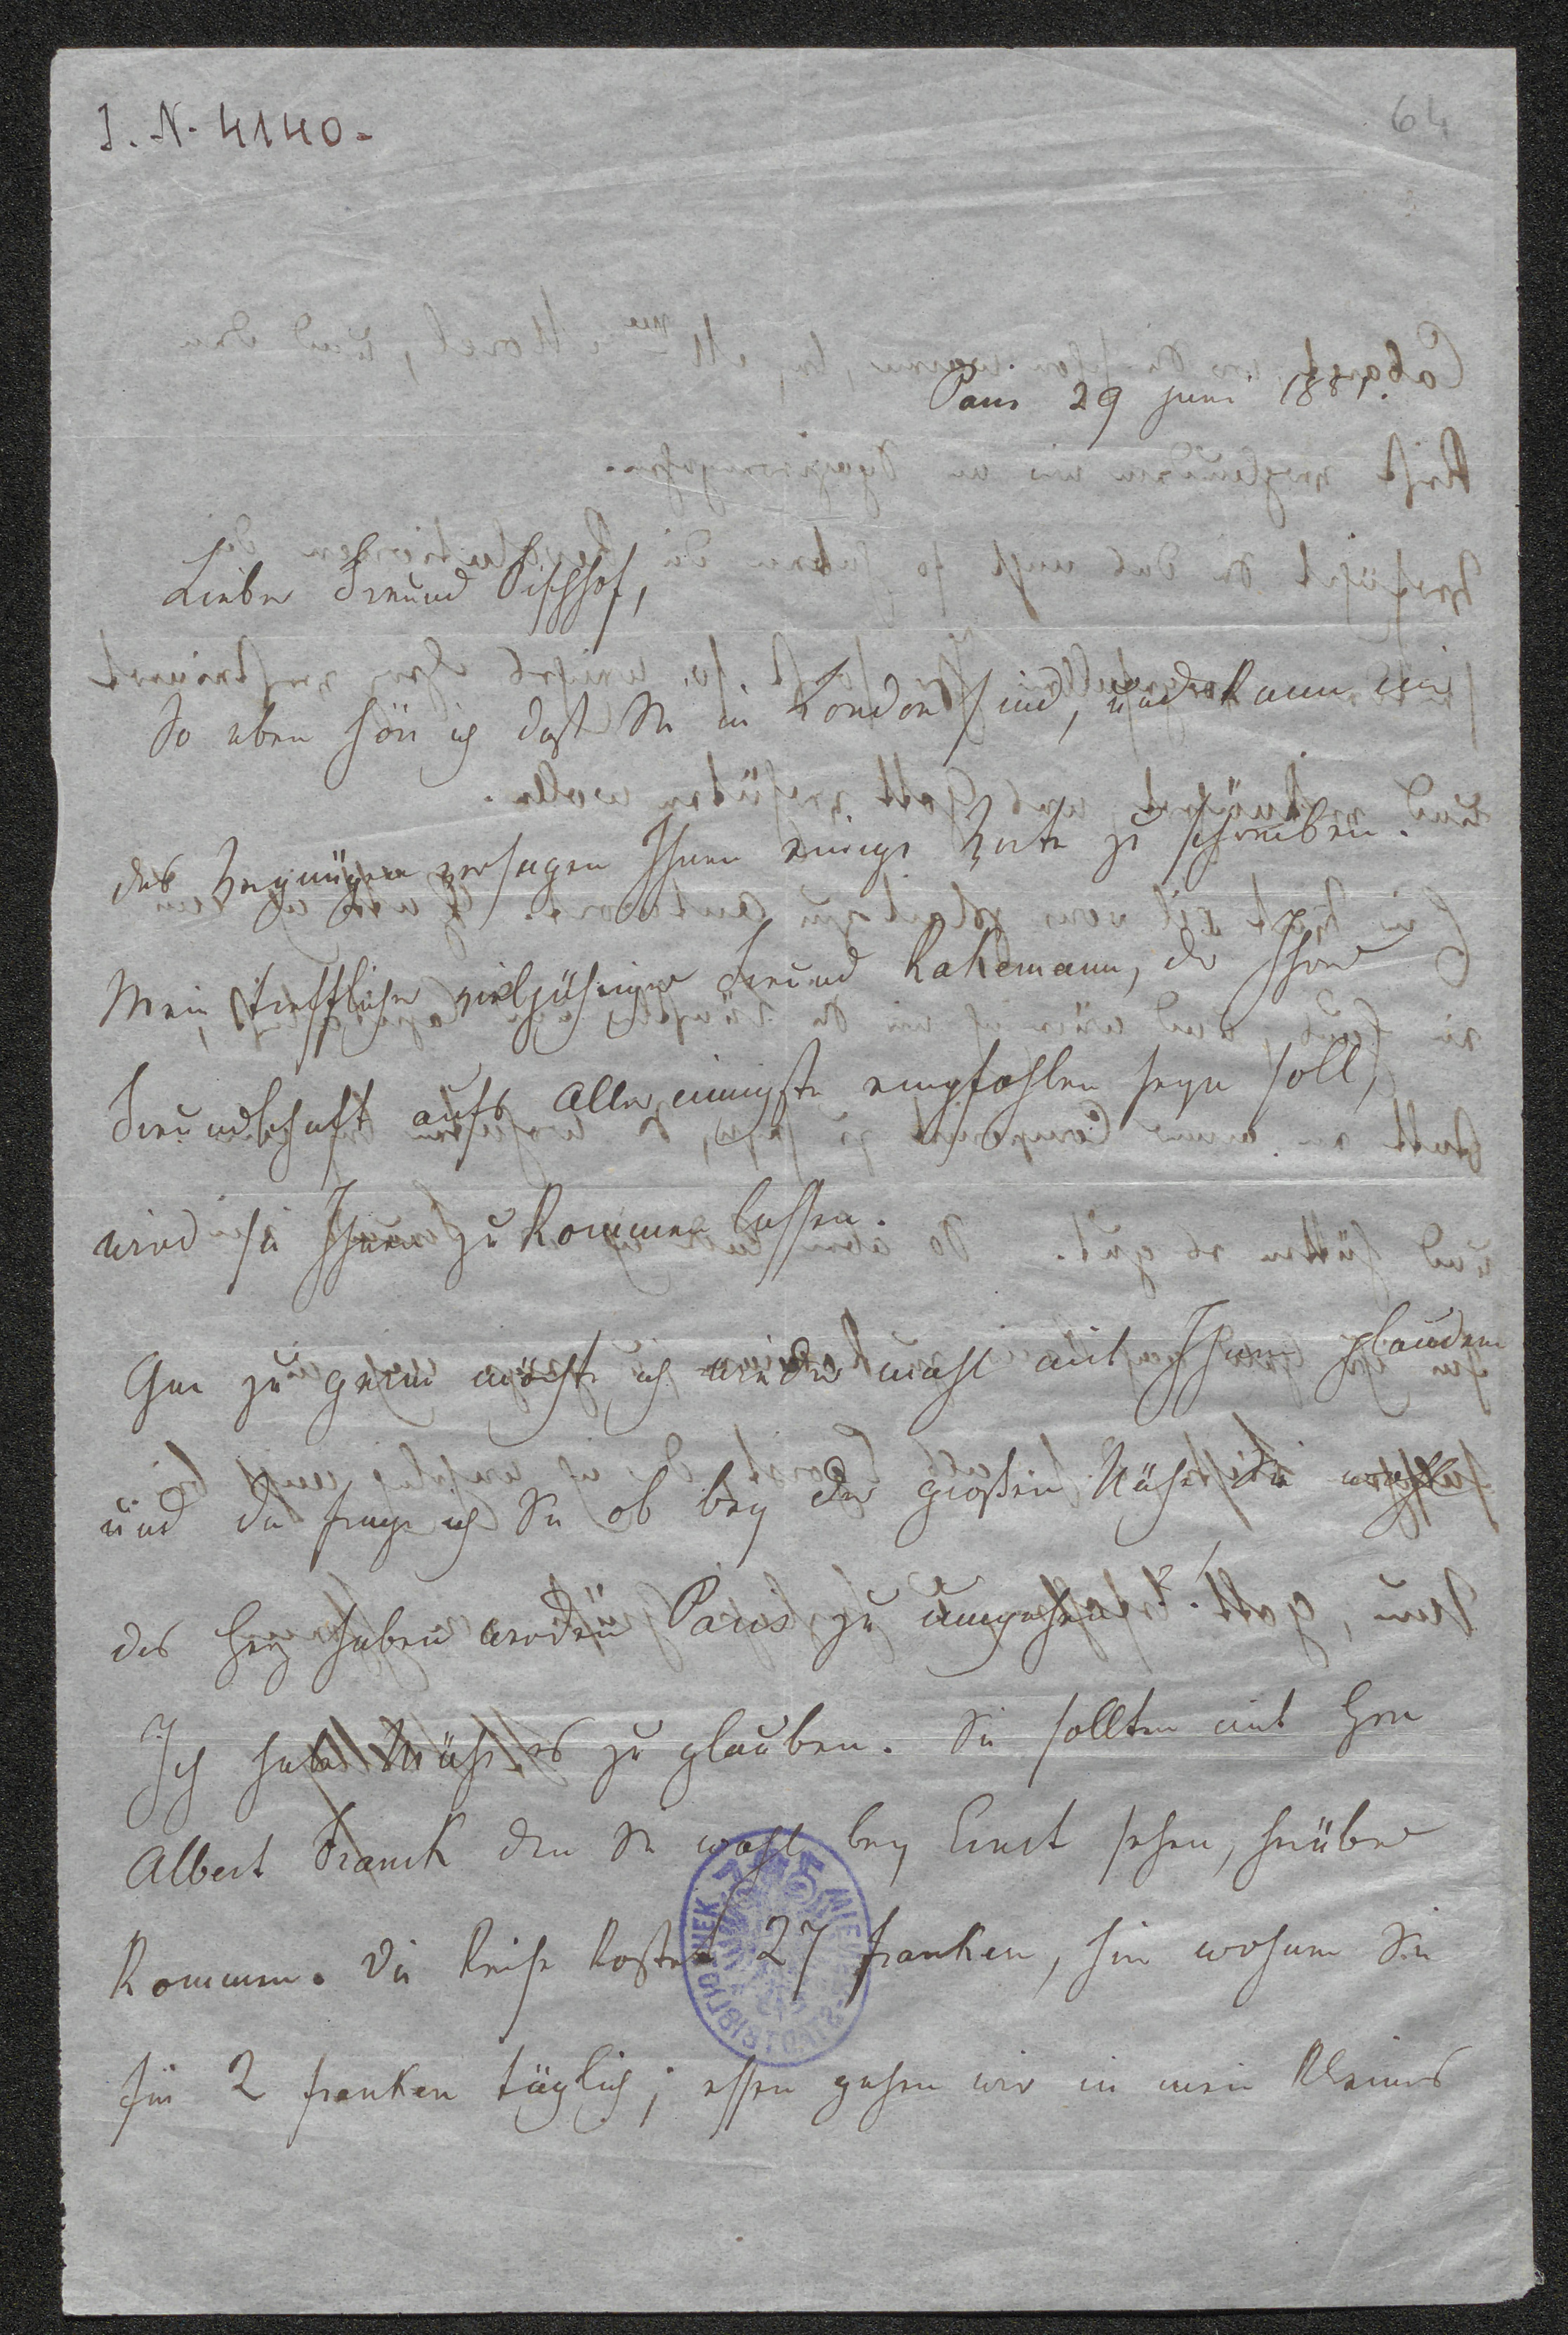 I.N. 4140.
64
Paris 29 juni 1851.
Lieber Freund Fischhof,
So eben höre ich daß Sie in London sind, und kann mir
das Vergnügen versagen Ihnen einige Worte zu schreiben.
Mein trefflicher vieljähriger Freund Rakemann, der Ihrer
Freundschaft aufs allerinnigste empfohlen seyn soll,
wird sie Ihnen zu kommen lassen.
Gar zu gerne möchte ich wieder mahl mit Ihnen plaudern
und da frage ich Sie ob bey der großen Nähe Sie wohl
das Herz haben werden Paris zu umgehen
Ich habe Mühe es zu glauben. Sie sollten mit Hrn
Albert Franck den Sie wohl bey Ernst sehen, herüber
kommen. Die Reise kostet 27 franken, hier wohnen Sie
für 2 franken täglich; essen gehen wir in mein kleines